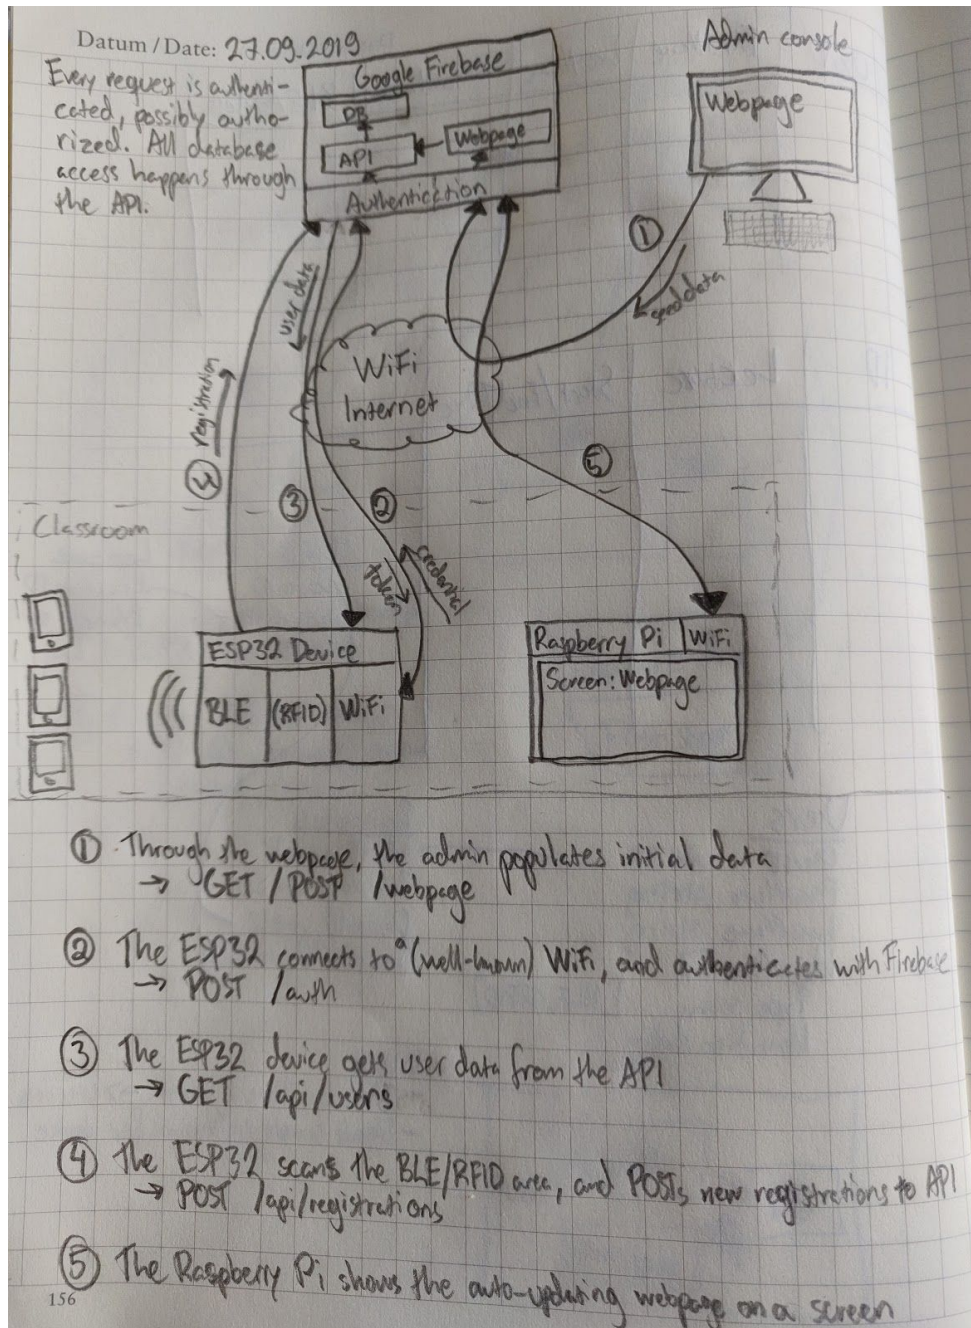 Datum / Date: 27.09.2019
Every request is authenti-
cated, possibly autho-
rized. All database
access happens through
the API.
Google Firebase
DB
API
Webpage
Authentication
Admin console
Webpage
①
seed data
user data
registration
WiFi
Internet
④
③
②
⑤
token
credential
Classroom
ESP32 Device
BLE
(RFID)
WiFi
Raspberry Pi
WiFi
Screen: Webpage
① Through the webpage, the admin populates initial data
→ GET / POST /webpage
② The ESP32 connects to a (well-known) WiFi, and authenticates with Firebase
→ POST /auth
③ The ESP32 device gets user data from the API
→ GET /api/users
④ The ESP32 scans the BLE/RFID area, and POSTs new registrations to API
→ POST /api/registrations
⑤ The Raspberry Pi shows the auto-updating webpage on a screen
156